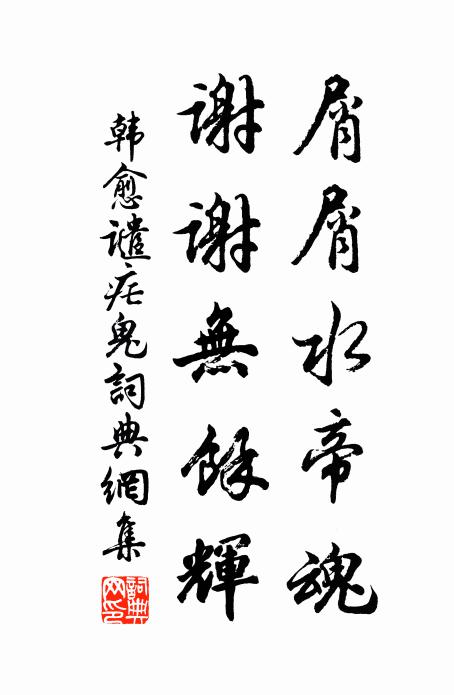 屑屑水帝魂
謝謝無餘輝
韩愈譴疟鬼詞典網集
詞典網印